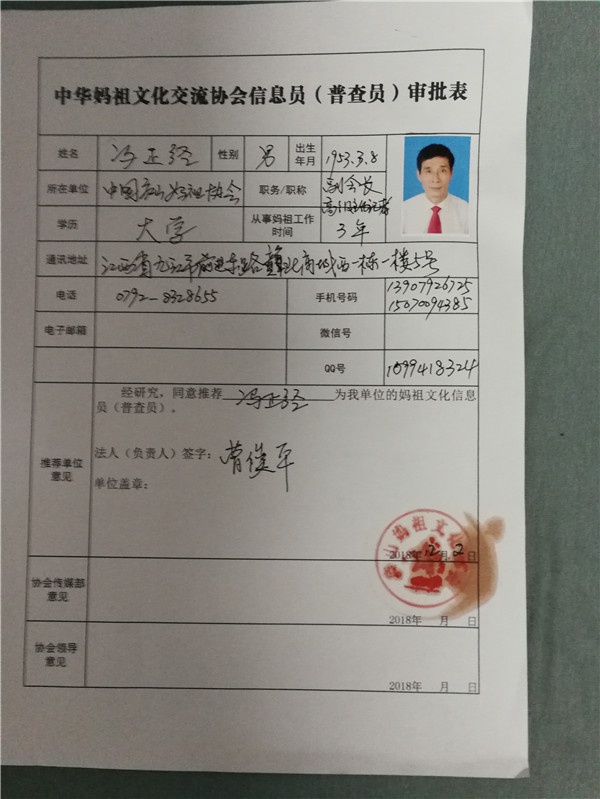 中华妈祖文化交流协会信息员（普查员）审批表
姓名 冯正经 性别 男 出生年月 1953.3.8
所在单位 中国庐山妈祖协会 职务/职称 副会长
学历 大学 从事妈祖工作时间 3年
通讯地址 江西省九江市 北商城西一栋一楼5号
电话 0792-8328655 手机号码 13907926725
15070094385
电子邮箱 微信号
QQ号 1099418324
推荐单位意见
经研究，同意推荐 冯正经 为我单位的妈祖文化信息
员（普查员）。
法人（负责人）签字：曹俊平
单位盖章：
山妈祖文化
2018年2月2日
协会传媒部意见
2018年 月 日
协会领导意见
2018年 月 日